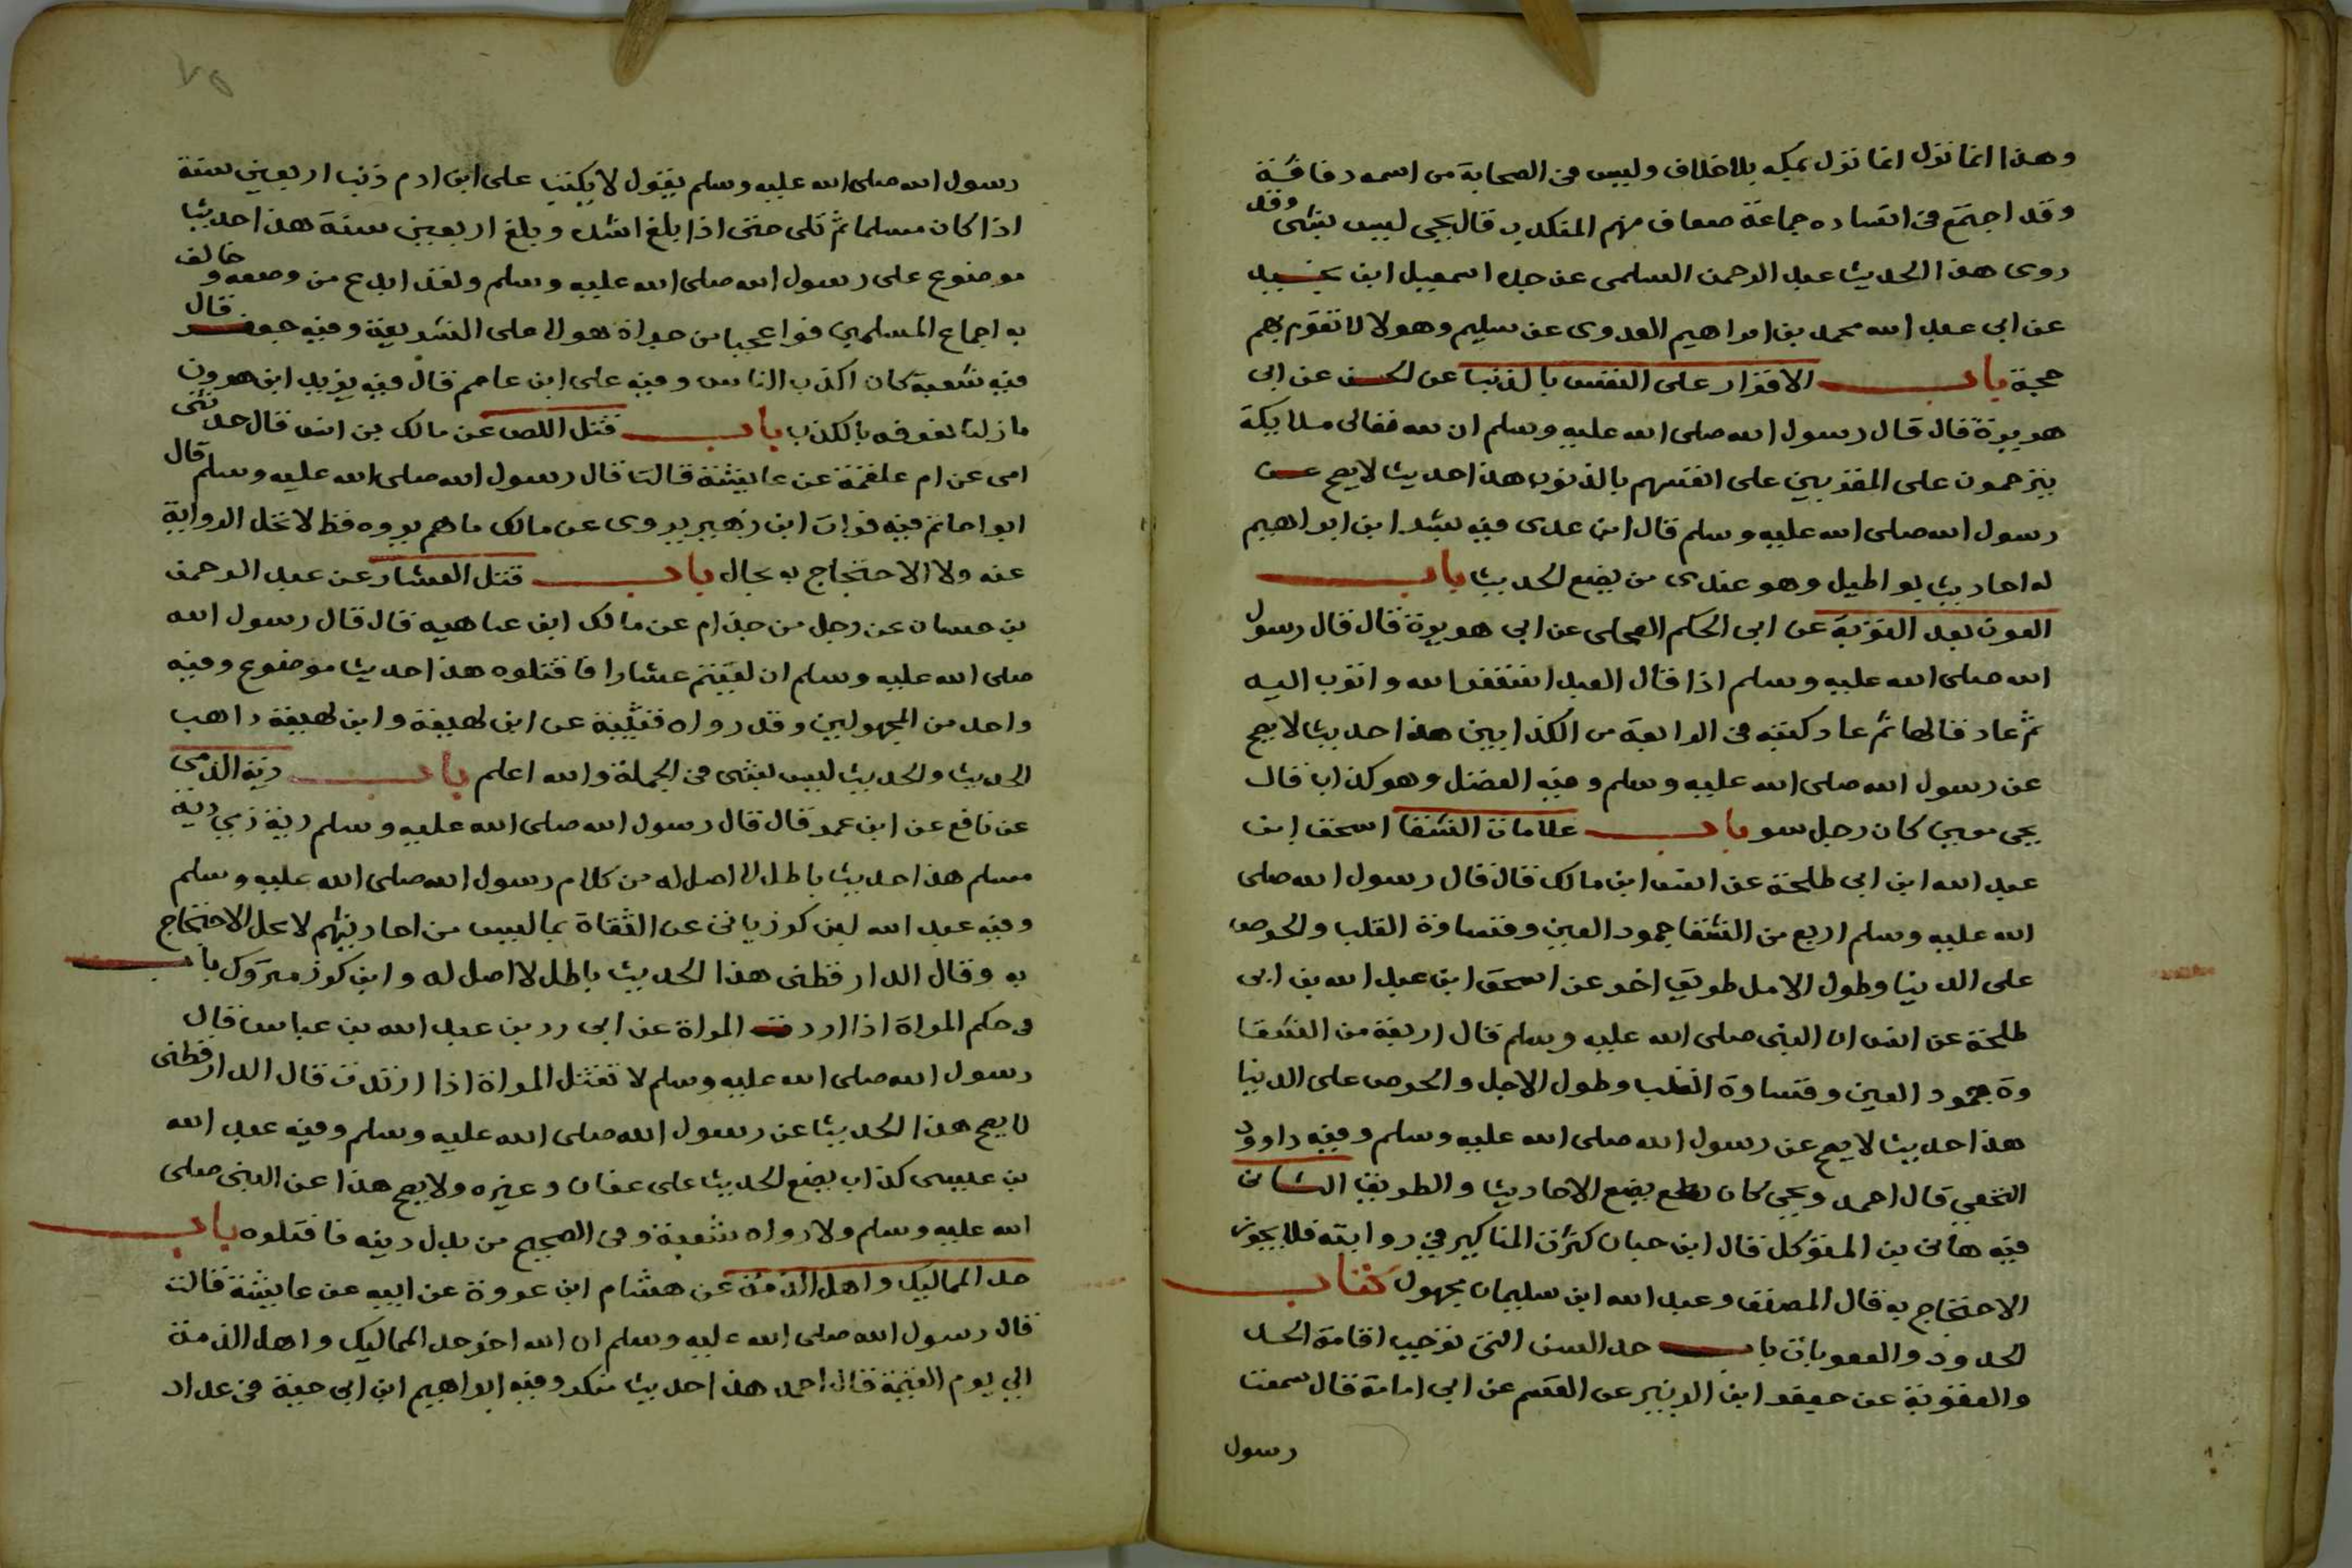 وهذا انما نزل انما نزل بمكه بلاخلاف وليس في الصحابة من اسمه دفافة
وقد اجتمع في اسناده جماعة ضعاف منهم المنكدر قال يحيى ليس بشى وقد
روى هذا الحديث عبد الرحمن السلمى عن جده اسمعيل ابن نجيد
عن ابى عبد الله محمد بن ابراهيم العدوى عن سليم وهولا لا تقوم بهم
حجة باب الاقرار على النفس بالذنب عن الحسن عن ابى
هريرة قال قال رسول الله صلى الله عليه وسلم ان لله تعالى ملايكة
يترحمون على المقربين على انفسهم بالذنوب هذا حديث لا يصح عن
رسول الله صلى الله عليه وسلم قال ابن عدى فيه بشر ابن ابراهيم
له احاديث بواطيل وهو عندى من يضع الحديث باب
العون بعد التوبة عن ابى الحكم البجلى عن ابى هريرة قال قال رسول
الله صلى الله عليه وسلم اذا قال العبد استغفر الله واتوب اليه
ثم عاد فقالها ثم عاد كتبته في الرابعة من الكذابين هذا حديث لا يصح
عن رسول الله صلى الله عليه وسلم وفيه الفضل وهو كذاب قال
يحى معين كان رجل سو باب علامات الشقا اسحق ابن
عبد الله ابن ابى طلحة عن انس ابن مالك قال قال رسول الله صلى
الله عليه وسلم اربع من الشقا جمود العين وقساوة القلب والحرص
على الدنيا وطول الامل طريق اخر عن اسحق ابن عبد الله بن ابى
طلحة عن انس ان النبى صلى الله عليه وسلم قال اربعة من الشقا
وة جمود العين وقساوة القلب وطول الاجل والحرص على الدنيا
هذا حديث لا يصح عن رسول الله صلى الله عليه وسلم وفيه داوود
النخعي قال احمد ويحيى كان يضع الاحاديث والطريق الثانى
فيه هانى بن المتوكل قال ابن حبان كثرت المناكير في روايته فلا يجوز
الاحتجاج به قال المصنف وعبد الله ابن سليمان مجهول كتاب
الحدود والعقوبات باب حد السن التى توجب اقامة الحد
والعقوبة عن جعفر ابن الزبير عن القسم عن ابى امامة قال سمعت
رسول
رسول الله صلى الله عليه وسلم يقول لا يكتب على ابن ادم ذنب اربعين سنة
اذا كان مسلما ثم تلى حتى اذا بلغ اشده وبلغ اربعين سنة هذا حديث
موضوع على رسول الله صلى الله عليه وسلم ولقد ابدع من وضعه وخالف
به اجماع المسلمين فواعجبا من جراة هولا على الشريعة وفيه جعفر قال
فيه شعبة كان اكذب الناس وفيه على ابن عاصم قال فيه يزيد ابن هرون
مازلنا نعرفه بالكذب باب قتل اللص عن مالك بن انس قال حدثتنى
امى عن ام علقمة عن عايشة قالت قال رسول الله صلى الله عليه وسلم قال
ابواحاتم فيه فرات ابن زهير يروى عن مالك ما لم يروه قط لا تحل الرواية
عنه ولا الاحتجاج به بحال باب قتل العشار عن عبد الرحمن
بن حسان عن رجل من جذام عن مالك ابن عتاهيه قال قال رسول الله
صلى الله عليه وسلم ان لقيتم عشارا فاقتلوه هذا حديث موضوع وفيه
واحد من المجهولين وقد رواه قتيبة عن ابن لهيعة وابن لهيعة ذاهب
الحديث والحديث ليس بشى في الجملة والله اعلم باب دية الذمي
عن نافع عن ابن عمر قال قال رسول الله صلى الله عليه وسلم دية ذمي دية
مسلم هذا حديث باطل لا اصل له من كلام رسول الله صلى الله عليه وسلم
وفيه عبد الله ابن كرز ياتى عن الثقاة بما ليس من احاديثهم لا يحل الاحتجاج
به وقال الدارقطنى هذا الحديث باطل لا اصل له وابن كرز متروك باب
في حكم المراة اذا اردت المراة عن ابى رد بن عبد الله بن عباس قال
رسول الله صلى الله عليه وسلم لا تقتل المراة اذا ارتدت قال الدارقطنى
لا يصح هذا الحديث عن رسول الله صلى الله عليه وسلم وفيه عبد الله
بن عيسى كذاب يضع الحديث على عفان وغيره ولا يصح هذا عن النبى صلى
الله عليه وسلم ولا رواه شعبة وفي الصحيح من بدل دينه فاقتلوه باب
حد المماليك واهل الذمة عن هشام ابن عروة عن ابيه عن عايشة قالت
قال رسول الله صلى الله عليه وسلم ان الله اخر حد المماليك واهل الذمة
الي يوم القيمة قال احمد هذا حديث منكر وفيه ابراهيم ابن ابى حية في عداد